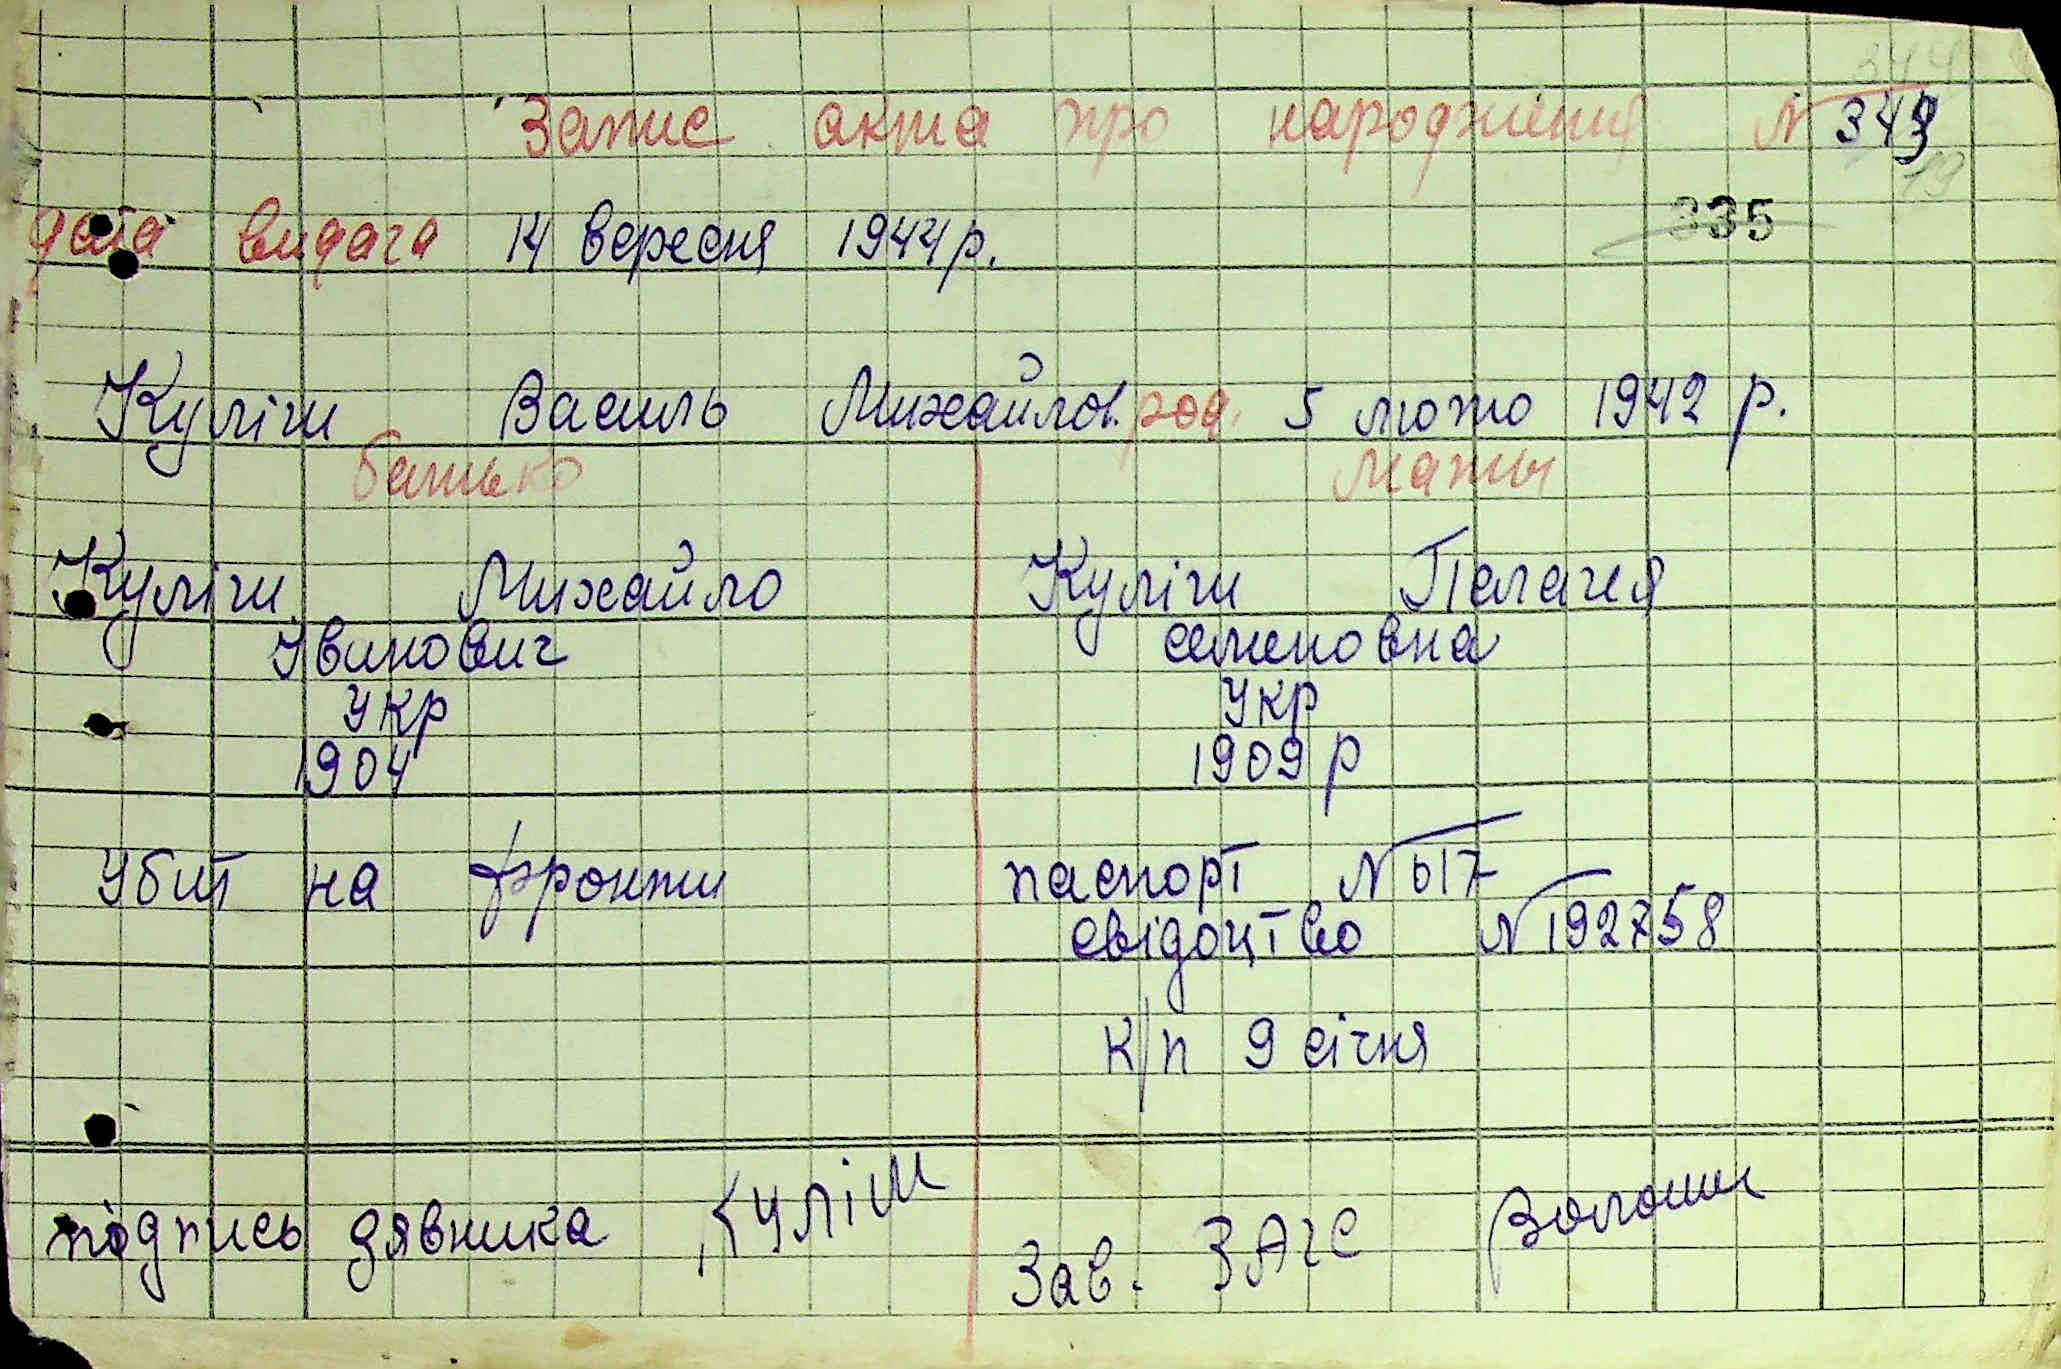 Запис акта про народження № 349
дата видача 14 вересня 1944 р.
335
Куліш Василь Михайлов. род. 5 люто 1942 р.
батько маты
Куліш Михайло Куліш Пелагея
Iвинович семеновна
Укр Укр
1904 1909 р
Убит на фронти паспорт № 617
свідоцтво № 192758
к/п 9 січня
підпись дявника Куліш Зав. ЗАГС Волошин